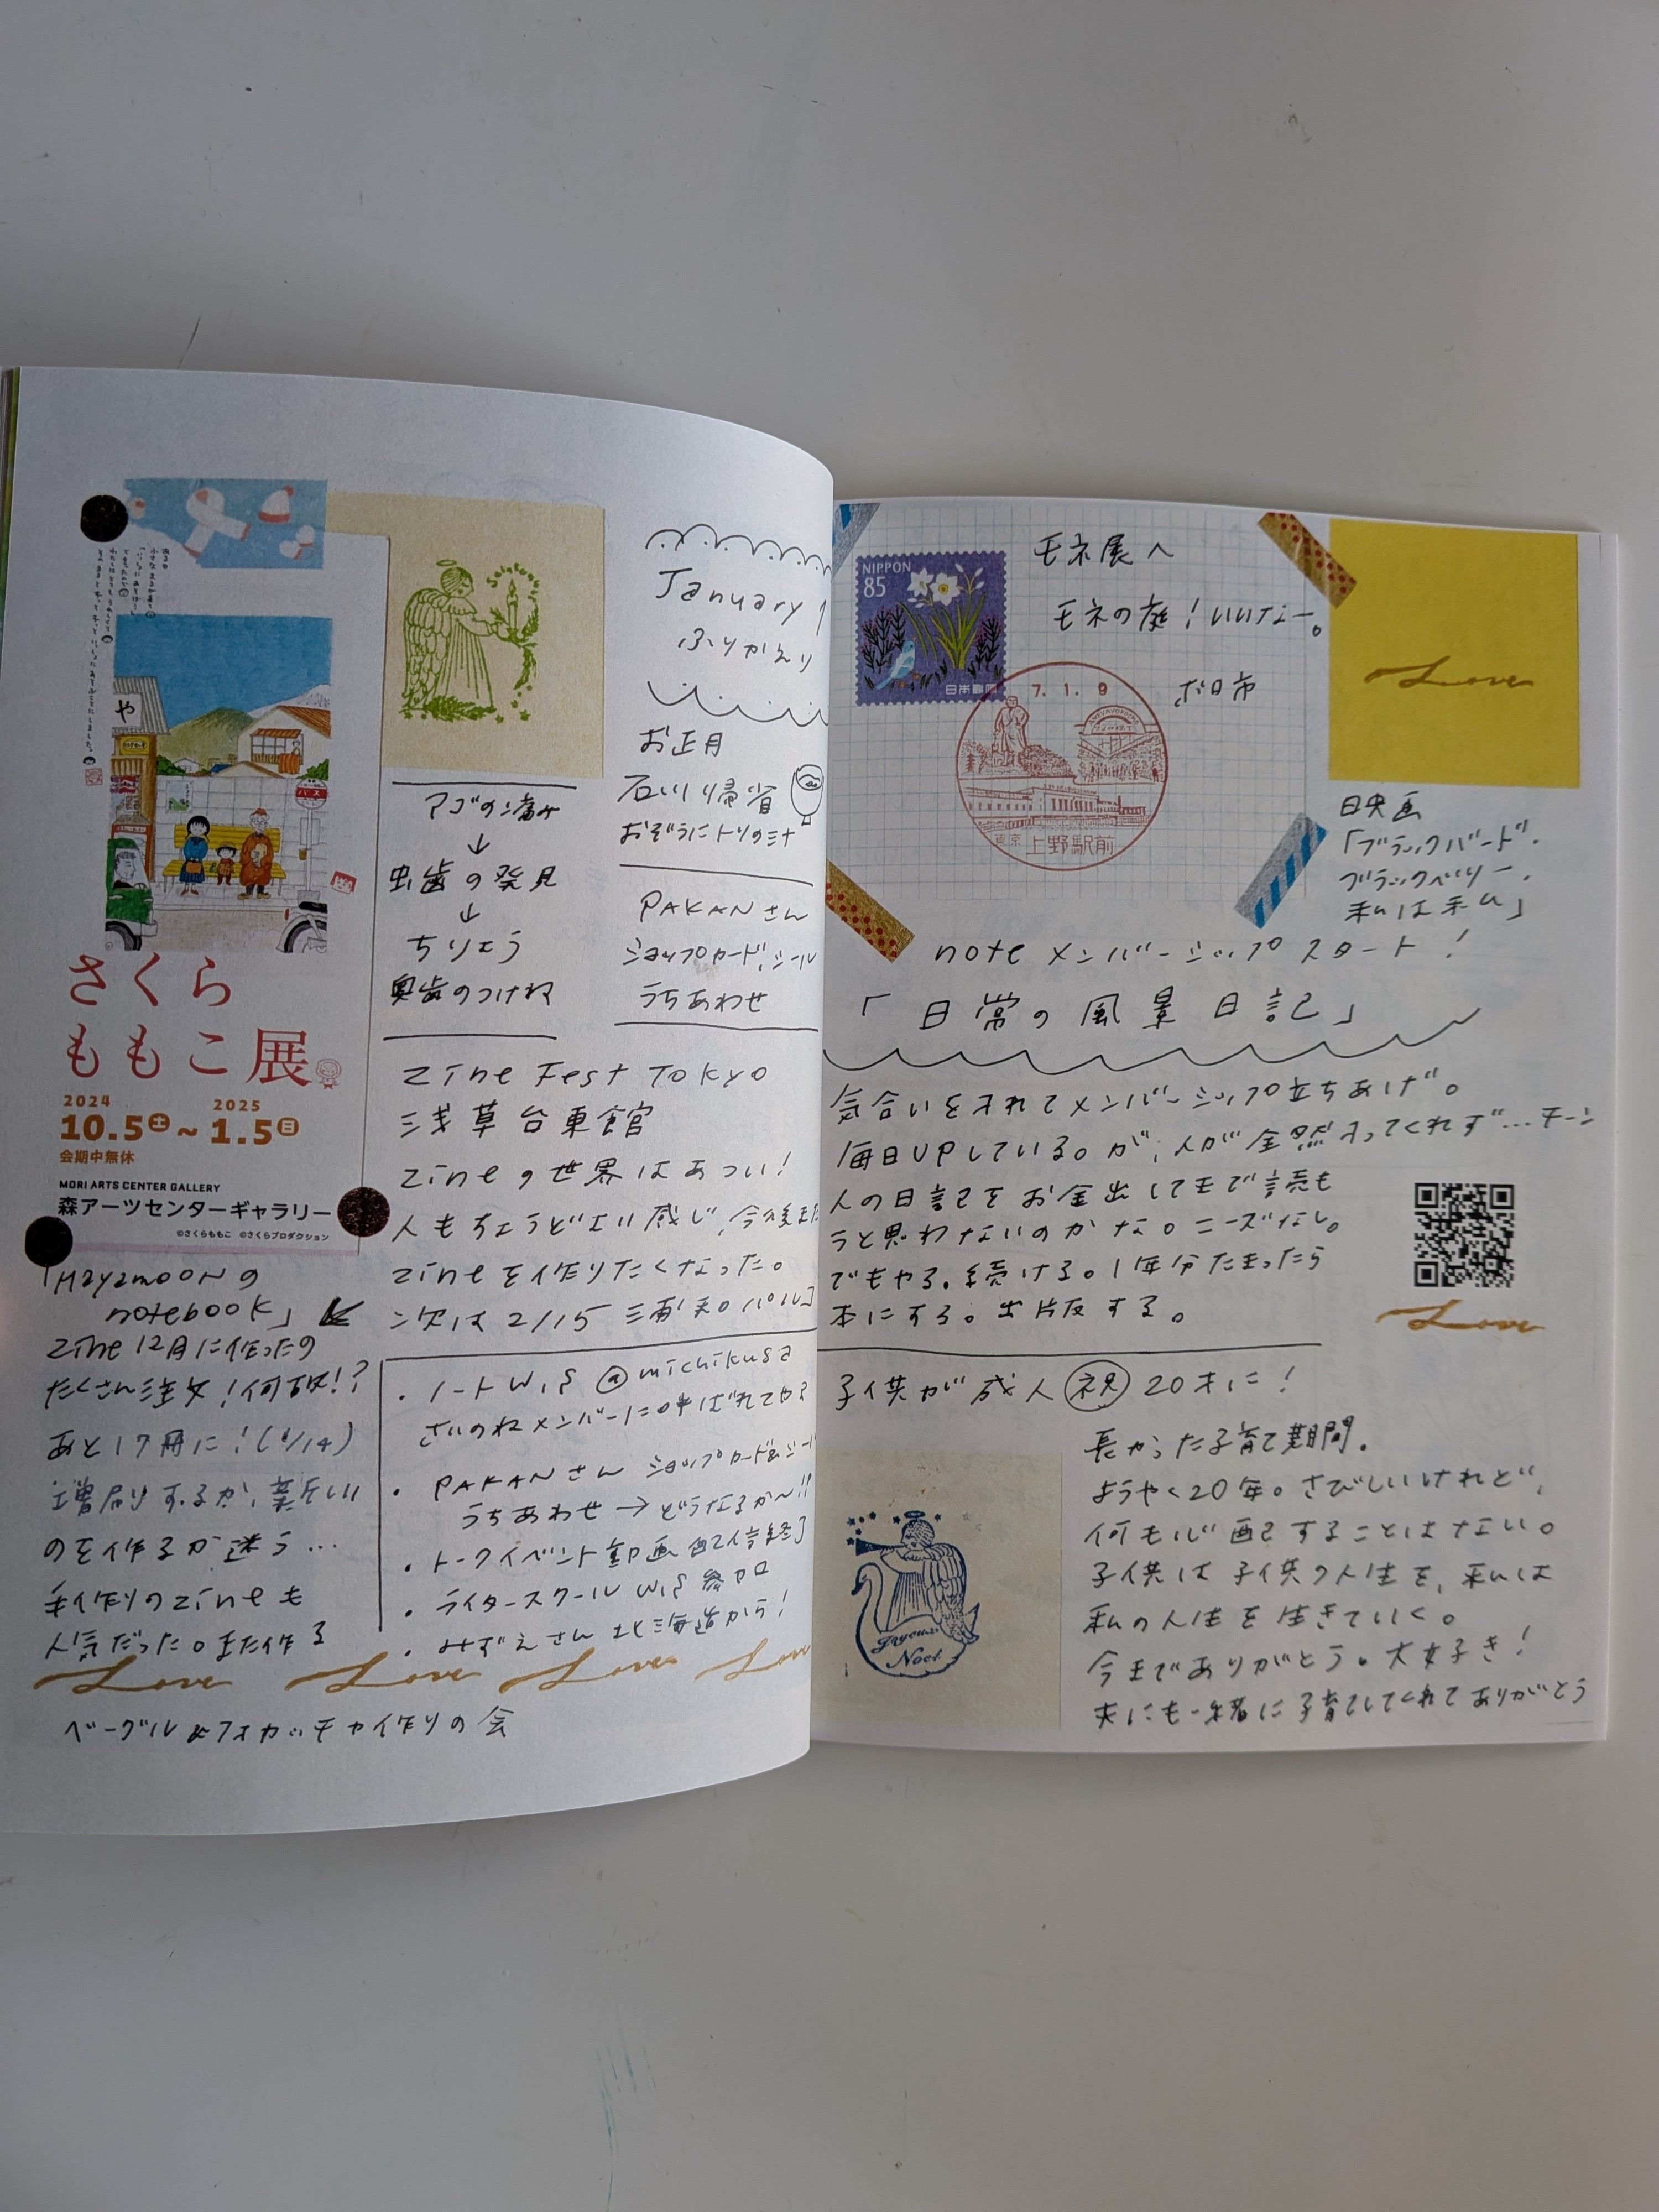 や
バス
さくら
ももこ展
2024 2025
10.5土~1.5日
会期中無休
MORI ARTS CENTER GALLERY
森アーツセンターギャラリー
©さくらももこ ©さくらプロダクション
「Mayamoonの
notebook」
zine 12月に作ったの
たくさん注文!何故!?
あと17冊に!(1/14)
増刷するか、新しい
のを作るか迷う…
手作りのzineも
人気だった。また作る
Love Love Love Love
ベーグル&フォカッチャ作りの会
アゴの痛み
↓
虫歯の発見
↓
ちりょう
奥歯のつけね
January 1
ふりかえり
お正月
石川帰省
おぞうにトリのミナ
PAKANさん
ショップカード、シール
うちあわせ
zine Fest Tokyo
浅草台東館
zineの世界はあつい!
人もちょうどよい感じ、今後また
zineを作りたくなった。
次は2/15 三浦 パルコ
・ノートWS @michikusa
さいのねメンバーに呼ばれてやる
・PAKANさん ショップカード&シール
うちあわせ→どうなるか〜!!
・トークイベント動画配信終了
・ライタースクールWS参加
・みずえさん北海道から!
モネ展へ
モネの庭!いいなー。
NIPPON
85
日本郵便
7.1.9
東京 上野駅前
ボロ市
Love
映画
「ブラックバード・
ブラックベリー・
私は私」
noteメンバーシップスタート!
「日常の風景日記」
気合いを入れてメンバーシップ立ちあげ。
毎日UPしている。が、人が全然入ってくれず…モーン
人の日記をお金出してまで読も
うと思わないのかな。ニーズなし。
でもやる。続ける。1年分たまったら
本にする。出版する。
Love
子供が成人祝20才に!
長かった子育て期間。
ようやく20年。さびしいけれど、
何も心配することはない。
子供は子供の人生を、私は
私の人生を生きていく。
今までありがとう。大好き!
夫にも一緒に子育てしてくれてありがとう
Joyeux
Noel